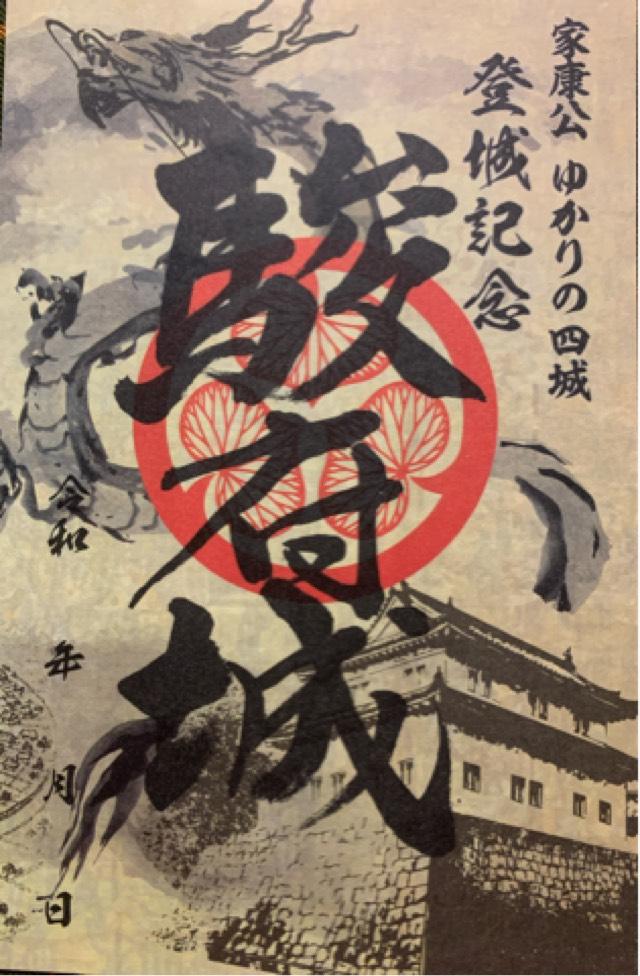 家康公 ゆかりの四城
登城記念
駿府城
令和 年 月 日